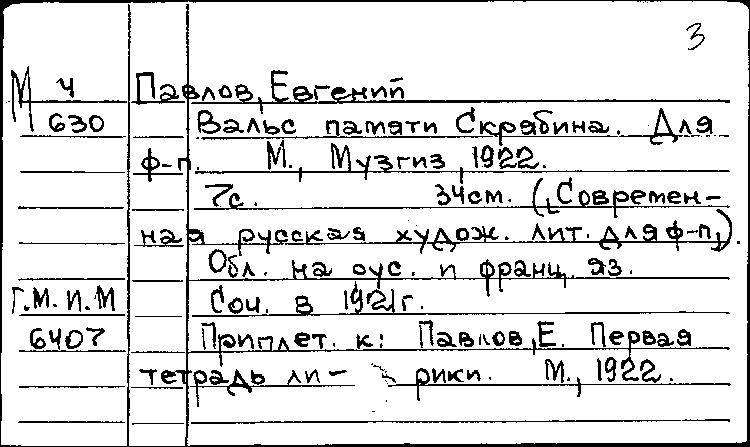 3
М Ч Павлов, Евгений
630 Вальс памяти Скрябина. Для
ф-п. М., Музгиз, 1922.
7с. 34см. ([Современ-
ная русская худож. лит. для ф-п]).
Обл. на рус. и франц. яз.
Г.М.И.М Соч. в 1921г.
6407 Приплет. к: Павлов, Е. Первая
тетрадь ли- рики. М., 1922.